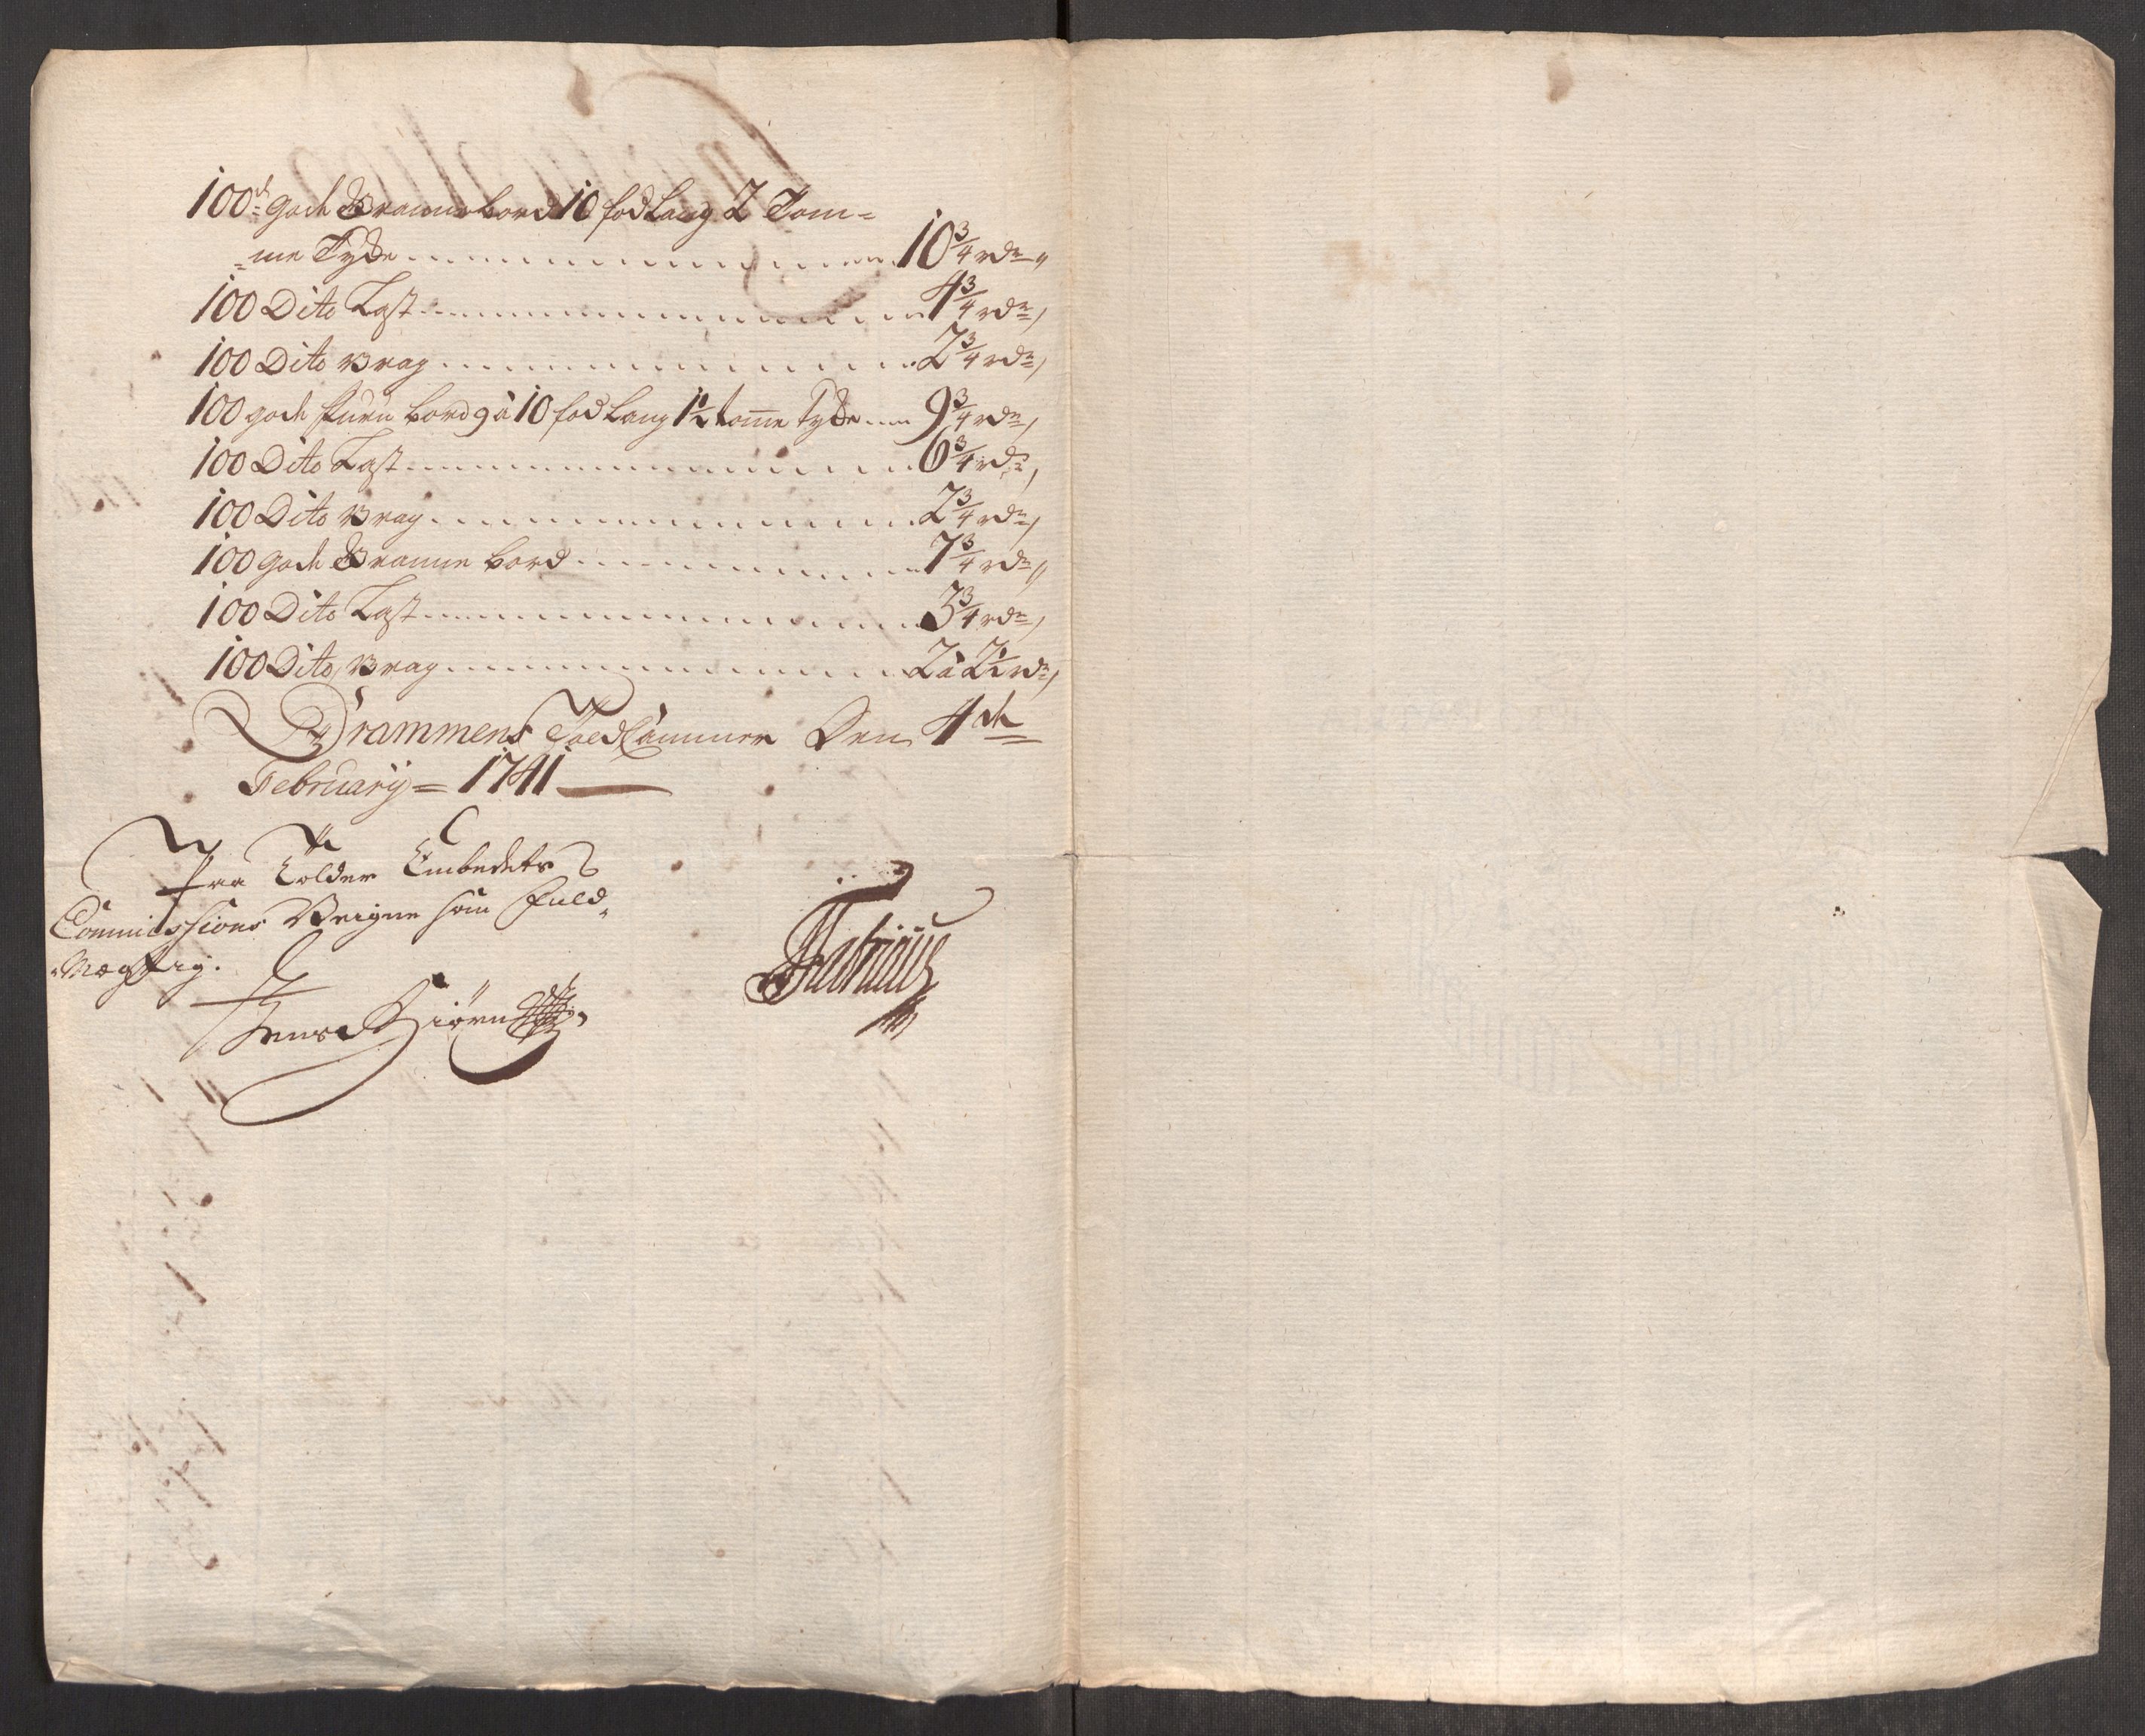 100de gode Branne bord 10 fod Lang 2 Tom=
=me Tyke 10 3/4 rdr
100 Dito Last 4 3/4 rdr
100 Dito Vrag 2 3/4 rdr
100 gode furu bord 9 à 10 fod Lang 1 1/2 tome Tyke 9 3/4 rdr
100 Dito Last 6 3/4 rdr
100 Dito Vrag 2 3/4 rdr
100 gode Branne bord 7 3/4 rdr
100 Dito Last 3 3/4 rdr
100 Dito Vrag 2 à 2 1/2 rdr
Drammens Told Cammer Den 4de
February = 1741
Paa Tolder Embedets
Commissions Veigne som Fuld
Mægtig.
Jens Biørn